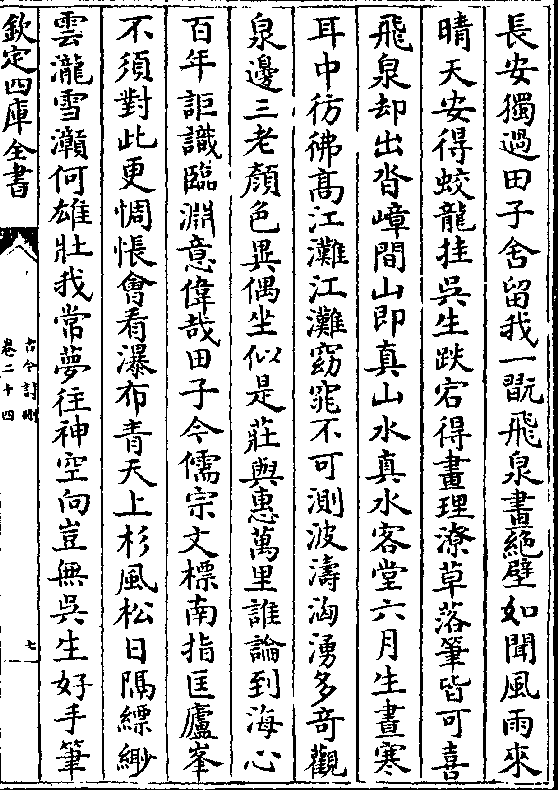 長安獨過田子舍留我一翫飛泉畫絕壁如聞風雨來
晴天安得蛟龍挂吳生跌宕得畫理潦草落筆皆可喜
飛泉却出沓嶂間山即真山水真水客堂六月生晝寒
耳中彷彿髙江灘江灘窈窕不可測波濤洶湧多奇觀
泉邊三老顔色異偶坐似是莊與惠萬里誰論到海心
百年詎識臨淵意偉哉田子今儒宗文標南指匡廬峯
不須對此更惆悵會看瀑布青天上杉風松日隔縹緲
雲瀧雪瀨何雄壯我常夢往神空向豈無吳生好手筆
欽定四庫全書
古今詩刪
卷二十四
七